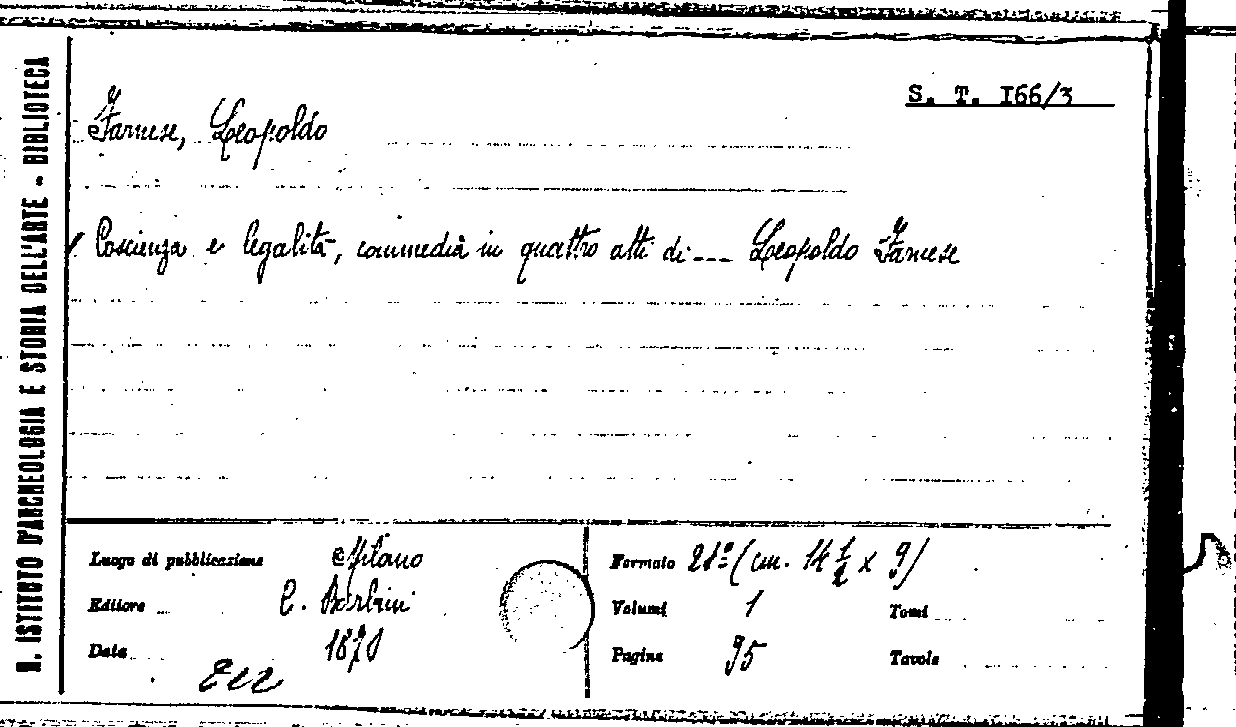 R. ISTITUTO D'ARCHEOLOGIA E STORIA DELL'ARTE - BIBLIOTECA
S. T. I66/3
Farnese, Leopoldo
Coscienza e legalità, commedia in quattro atti di --- Leopoldo Farnese
Luogo di pubblicazione Milano
Editore C. Barbini
Data 1870
Formato 28º (cm. 14 1/2 x 9)
Volumi 1 Tomi
Pagine 95 Tavole